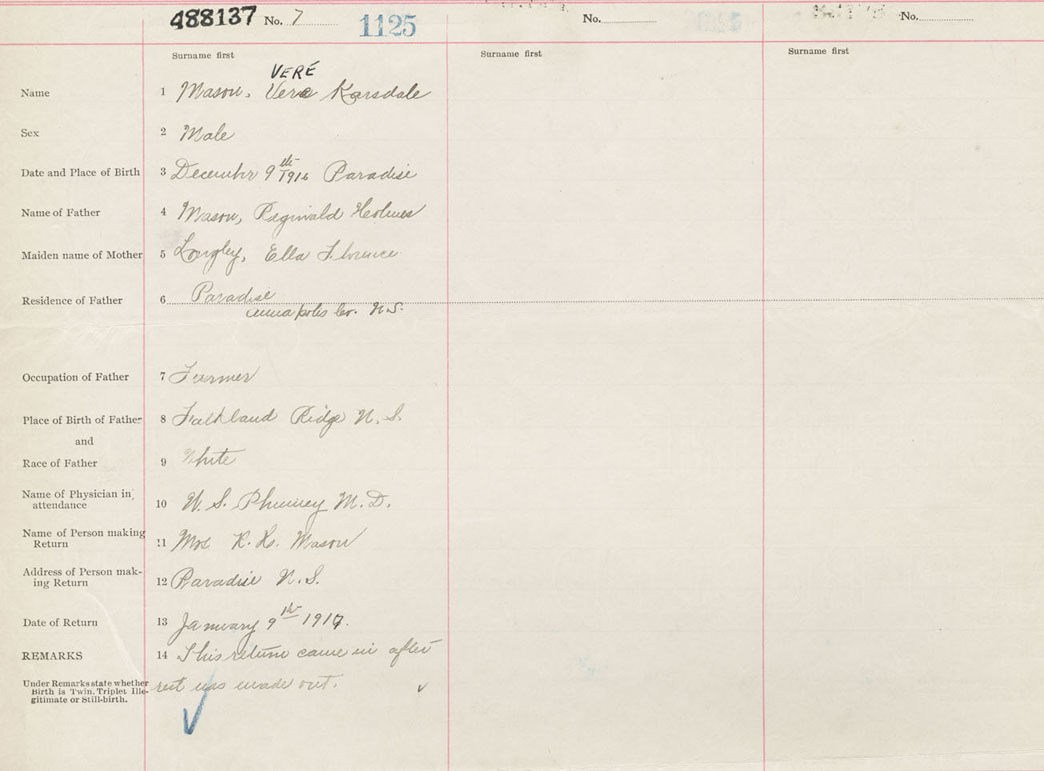 488137 No. 7 1125 No. No.
Surname first Surname first Surname first
VERE
Name 1 Mason, Vere Karsdale
Sex 2 Male
Date and Place of Birth 3 December 9th 1916 Paradise
Name of Father 4 Mason, Reginald Holmes
Maiden name of Mother 5 Longley, Ella Florence
Residence of Father 6 Paradise
Annapolis Co. N.S.
Occupation of Father 7 Farmer
Place of Birth of Father 8 Falkland Ridge N.S.
and
Race of Father 9 White
Name of Physician in
attendance 10 W. S. Phinney M.D.
Name of Person making
Return 11 Mrs R. H. Mason
Address of Person mak-
ing Return 12 Paradise N.S.
Date of Return 13 January 9th 1917.
REMARKS 14 This return came in after
Under Remarks state whether
Birth is Twin, Triplet Ille-
gitimate or Still-birth.
rest was made out.